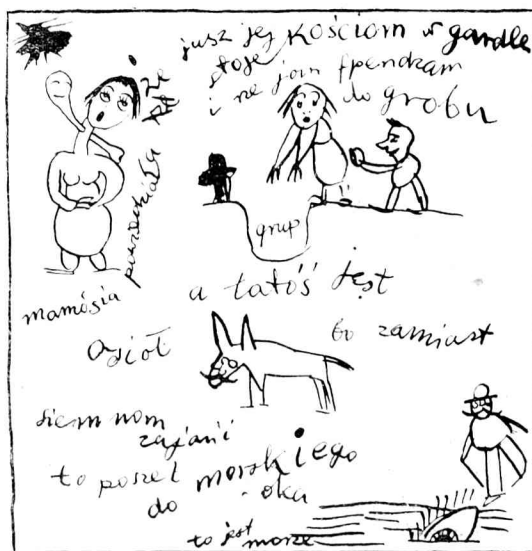 mamósia
powiedziała rze
jusz jej kościom w gardle
stoje
i rze join fpendzam
do grobu
grup
a tatóś jest
osioł
bo zamiast
siem nom
zajańć
to poszet morskiego
do oka
to jest morze